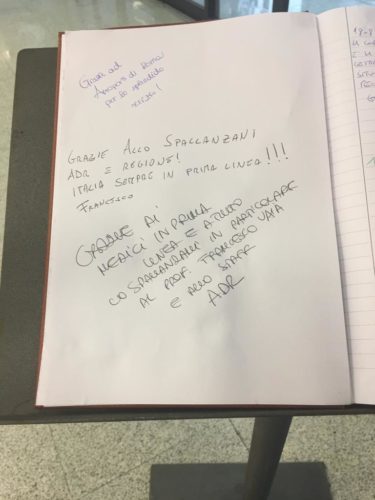 Grazie ad
Aeroporti di Roma
per lo splendido
GRAZIE ALLO SPALLANZANI
ADR E REGIONE!
ITALIA SEMPRE IN PRIMA LINEA!!!
FRANCESCO
GRAZIE AI
MEDICI IN PRIMA
LINEA E A TUTTO
LO SPALLANZANI IN PARTICOLARE
AL PROF. FRANCESCO VAIA
E ALLO STAFF
ADR